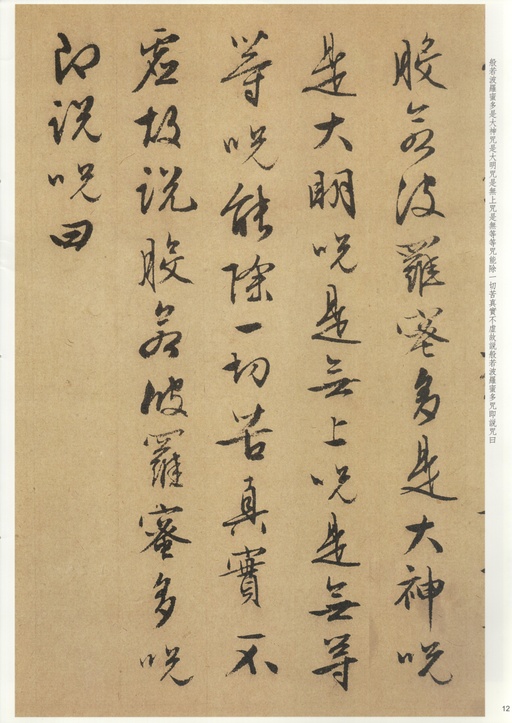 般若波羅蜜多是大神咒是大明咒是無上咒是無等等咒能除一切苦真實不虛故說般若波羅蜜多咒即說咒曰
般若波羅蜜多是大神咒
是大明咒是無上咒是無等
等咒能除一切苦真實不
虛故說般若波羅蜜多咒
即說咒曰
12